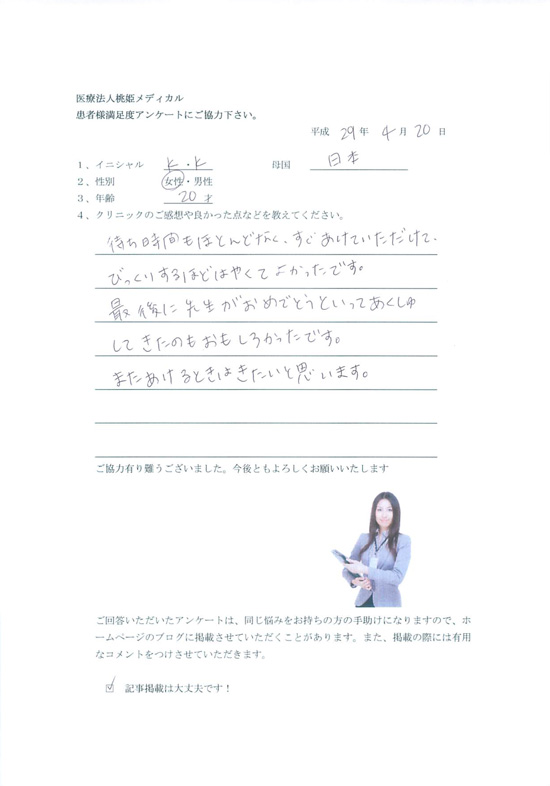 医療法人桃姫メディカル
患者様満足度アンケートにご協力下さい。
平成 29 年 4 月 20 日
1、イニシャル K・K 母国 日本
2、性別 女性・男性
3、年齢 20 才
4、クリニックのご感想や良かった点などを教えてください。
待ち時間もほとんどなく、すぐあけていただけて、
びっくりするほどはやくてよかったです。
最後に先生がおめでとうといってあくしゅ
してきたのもおもしろかったです。
またあけるときはきたいと思います。
ご協力有り難うございました。今後ともよろしくお願いいたします
ご回答いただいたアンケートは、同じ悩みをお持ちの方の手助けになりますので、ホ
ームページのブログに掲載させていただくことがあります。また、掲載の際には有用
なコメントをつけさせていただきます。
☑ 記事掲載は大丈夫です！